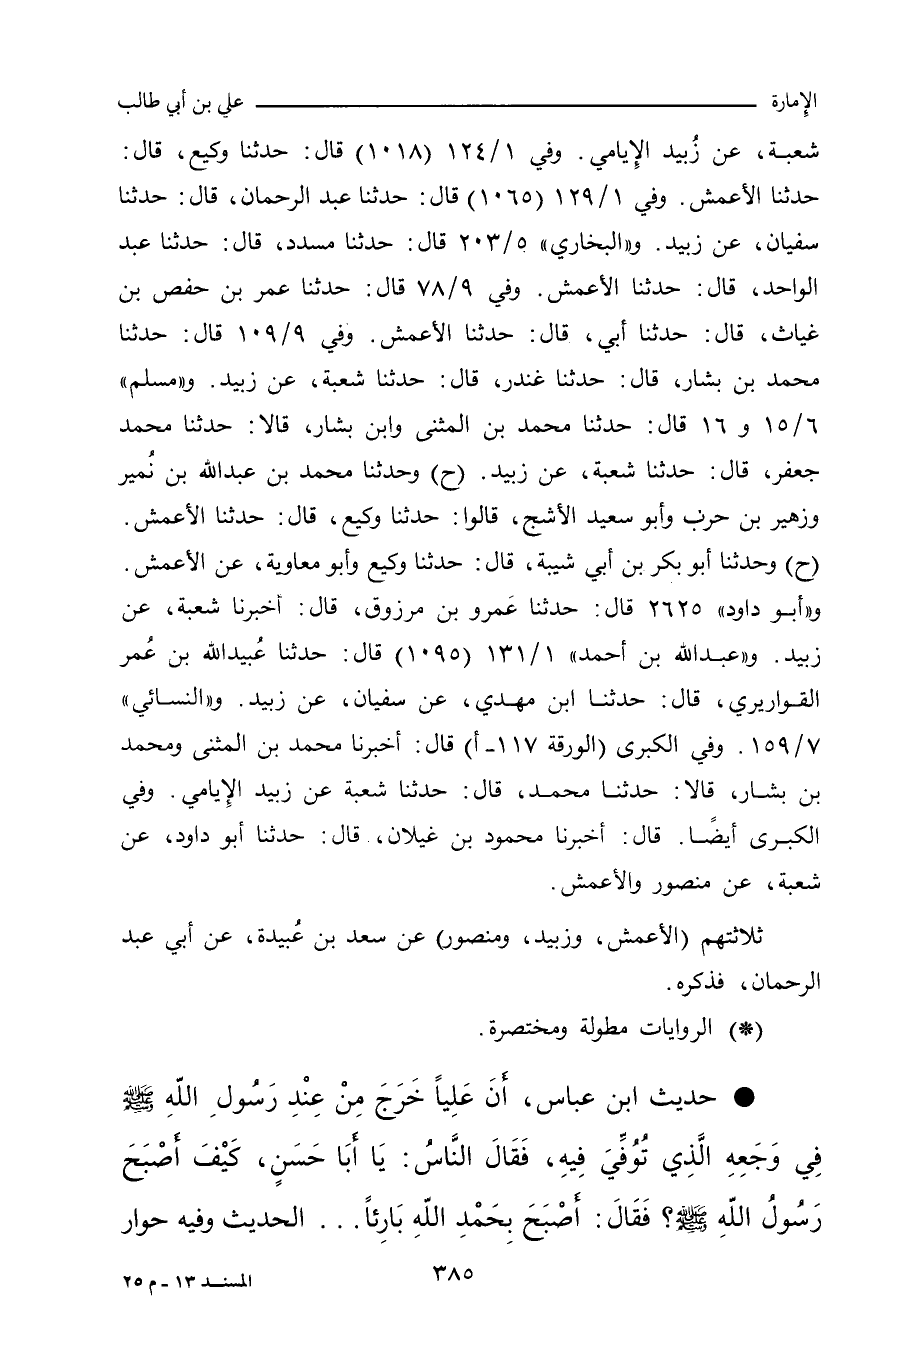 الإمارة ــــــــــــــــــــــــــــــــــــــــ علي بن أبي طالب
شعبـة، عن زُبيد الإيامي. وفي ١٢٤/١ (١٠١٨) قال: حدثنا وكيع، قال:
حدثنا الأعمش. وفي ١٢٩/١ (١٠٦٥) قال: حدثنا عبد الرحمان، قال: حدثنا
سفيان، عن زبيد. و«البخاري» ٢٠٣/٥ قال: حدثنا مسدد، قال: حدثنا عبد
الواحد، قال: حدثنا الأعمش. وفي ٧٨/٩ قال: حدثنا عمر بن حفص بن
غياث، قال: حدثنا أبي، قال: حدثنا الأعمش. وفي ١٠٩/٩ قال: حدثنا
محمد بن بشار، قال: حدثنا غندر، قال: حدثنا شعبة، عن زبيد. و«مسلم»
١٥/٦ و ١٦ قال: حدثنا محمد بن المثنى وابن بشار، قالا: حدثنا محمد
جعفر، قال: حدثنا شعبة، عن زبيد. (ح) وحدثنا محمد بن عبدالله بن نُمير
وزهير بن حرب وأبو سعيد الأشج، قالوا: حدثنا وكيع، قال: حدثنا الأعمش.
(ح) وحدثنا أبو بكر بن أبي شيبة، قال: حدثنا وكيع وأبو معاوية، عن الأعمش.
و«أبـو داود» ٢٦٢٥ قال: حدثنا عَمرو بن مرزوق، قال: أخبرنا شعبة، عن
زبيد. و«عبـدالله بن أحمد» ١٣١/١ (١٠٩٥) قال: حدثنا عُبيدالله بن عُمر
القـواريري، قال: حدثنـا ابن مهـدي، عن سفيان، عن زبيد. و«النسـائي»
١٥٩/٧. وفي الكبرى (الورقة ١١٧ـ أ) قال: أخبرنا محمد بن المثنى ومحمد
بن بشـار، قالا: حدثنـا محمـد، قال: حدثنا شعبة عن زبيد الإيامي. وفي
الكبـرى أيضًـا. قال: أخبرنا محمود بن غيلان، قال: حدثنا أبو داود، عن
شعبة، عن منصور والأعمش.
ثلاثتهم (الأعمش، وزبيد، ومنصور) عن سعد بن عُبيدة، عن أبي عبد
الرحمان، فذكره.
(*) الروايات مطولة ومختصرة.
● حديث ابن عباس، أَنَ عَلِياً خَرَجَ مِنْ عِنْدِ رَسُولِ اللّهِ ﷺ
فِي وَجَعِهِ الَّذِي تُوُفِّيَ فِيهِ، فَقَالَ النَّاسُ: يَا أَبَا حَسَنٍ، كَيْفَ أَصْبَحَ
رَسُولُ اللّهِ ﷺ؟ فَقَالَ: أَصْبَحَ بِحَمْدِ اللّهِ بَارِئاً... الحديث وفيه حوار
٣٨٥
المسنـد ١٣ - م ٢٥